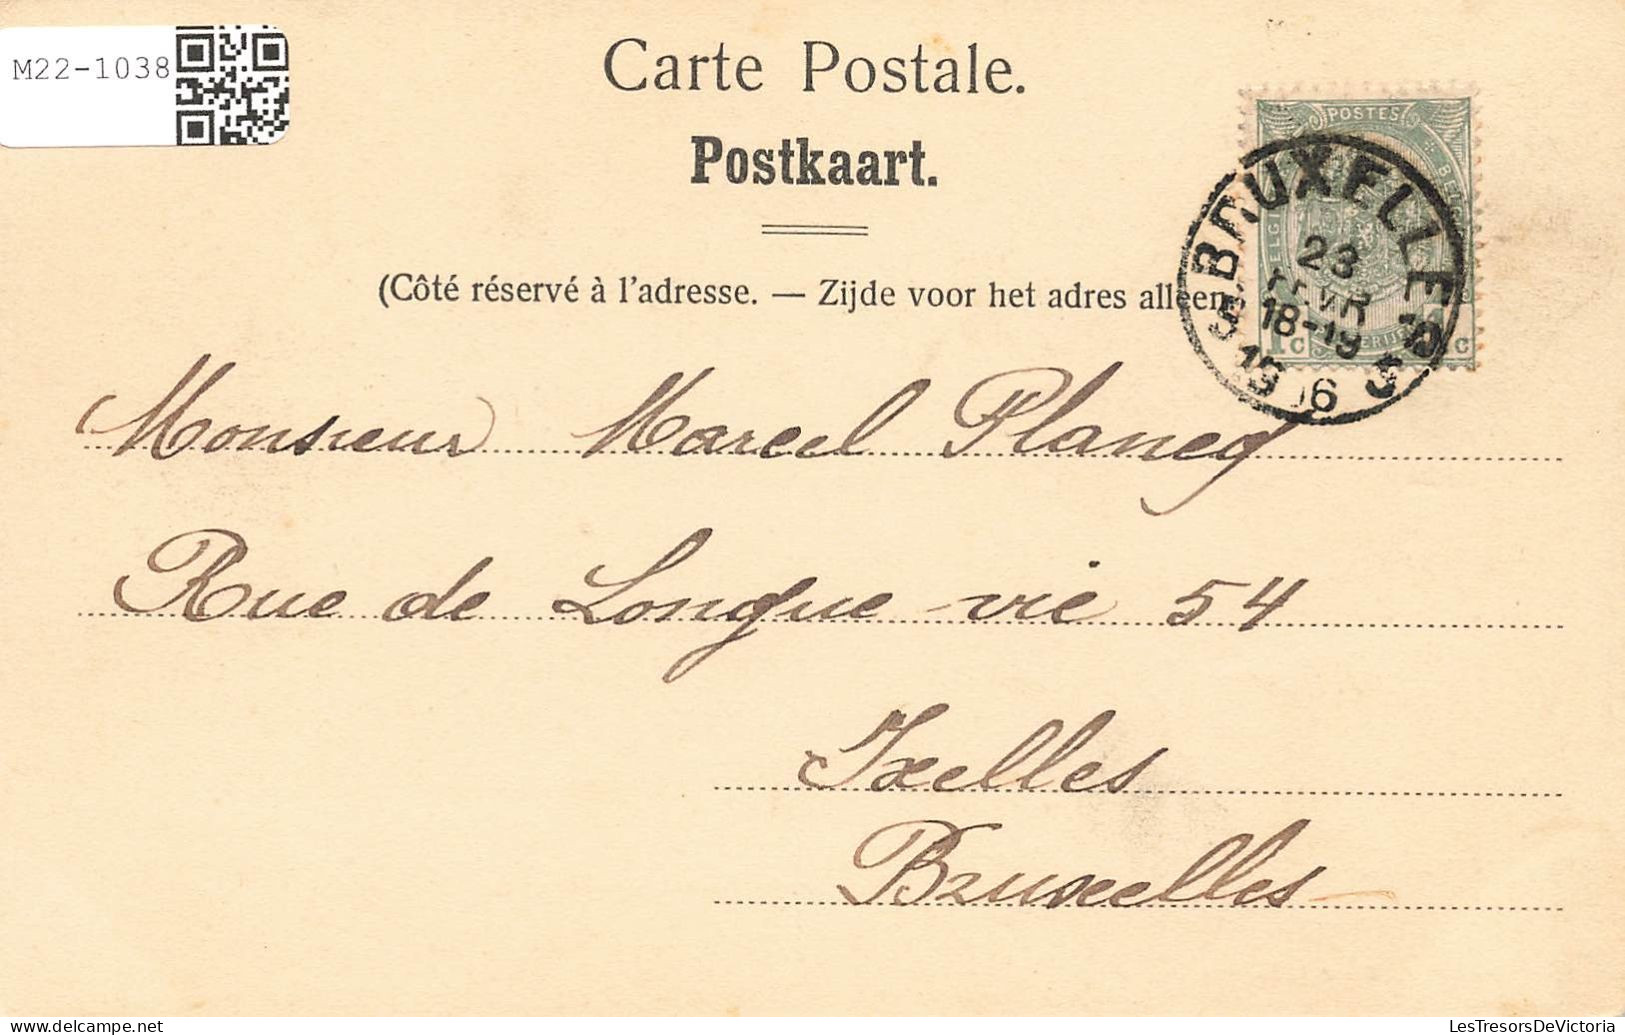 M22-1038
Carte Postale.
Postkaart.
(Côté réservé à l'adresse. — Zijde voor het adres alleen
POSTES
BRUXELLES
23
FEVR
18-19
1906
5 5
1 c 1 c
Monsieur Marcel Plancq
Rue de Longue vie 54
Ixelles
Bruxelles
LesTresorsDeVictoria